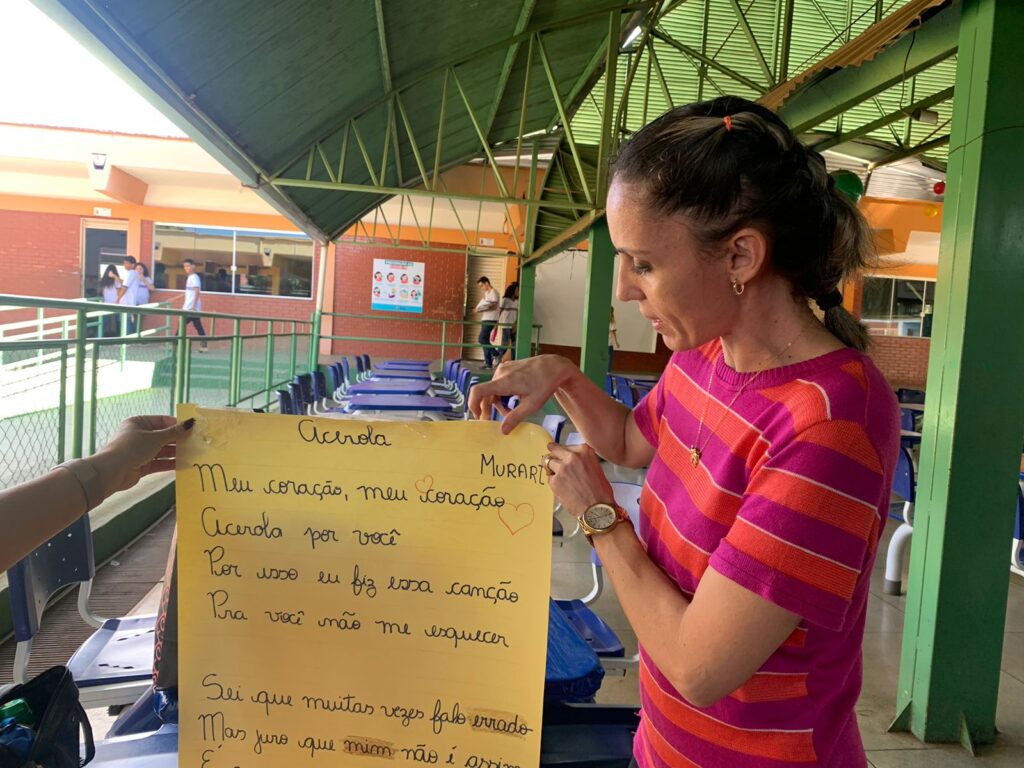 Acerola
MURARI
Meu coração, meu coração
Acerola por você
Por isso eu fiz essa canção
Pra você não me esquecer
Sei que muitas vezes falo errado
Mas juro que mim não é assim
É